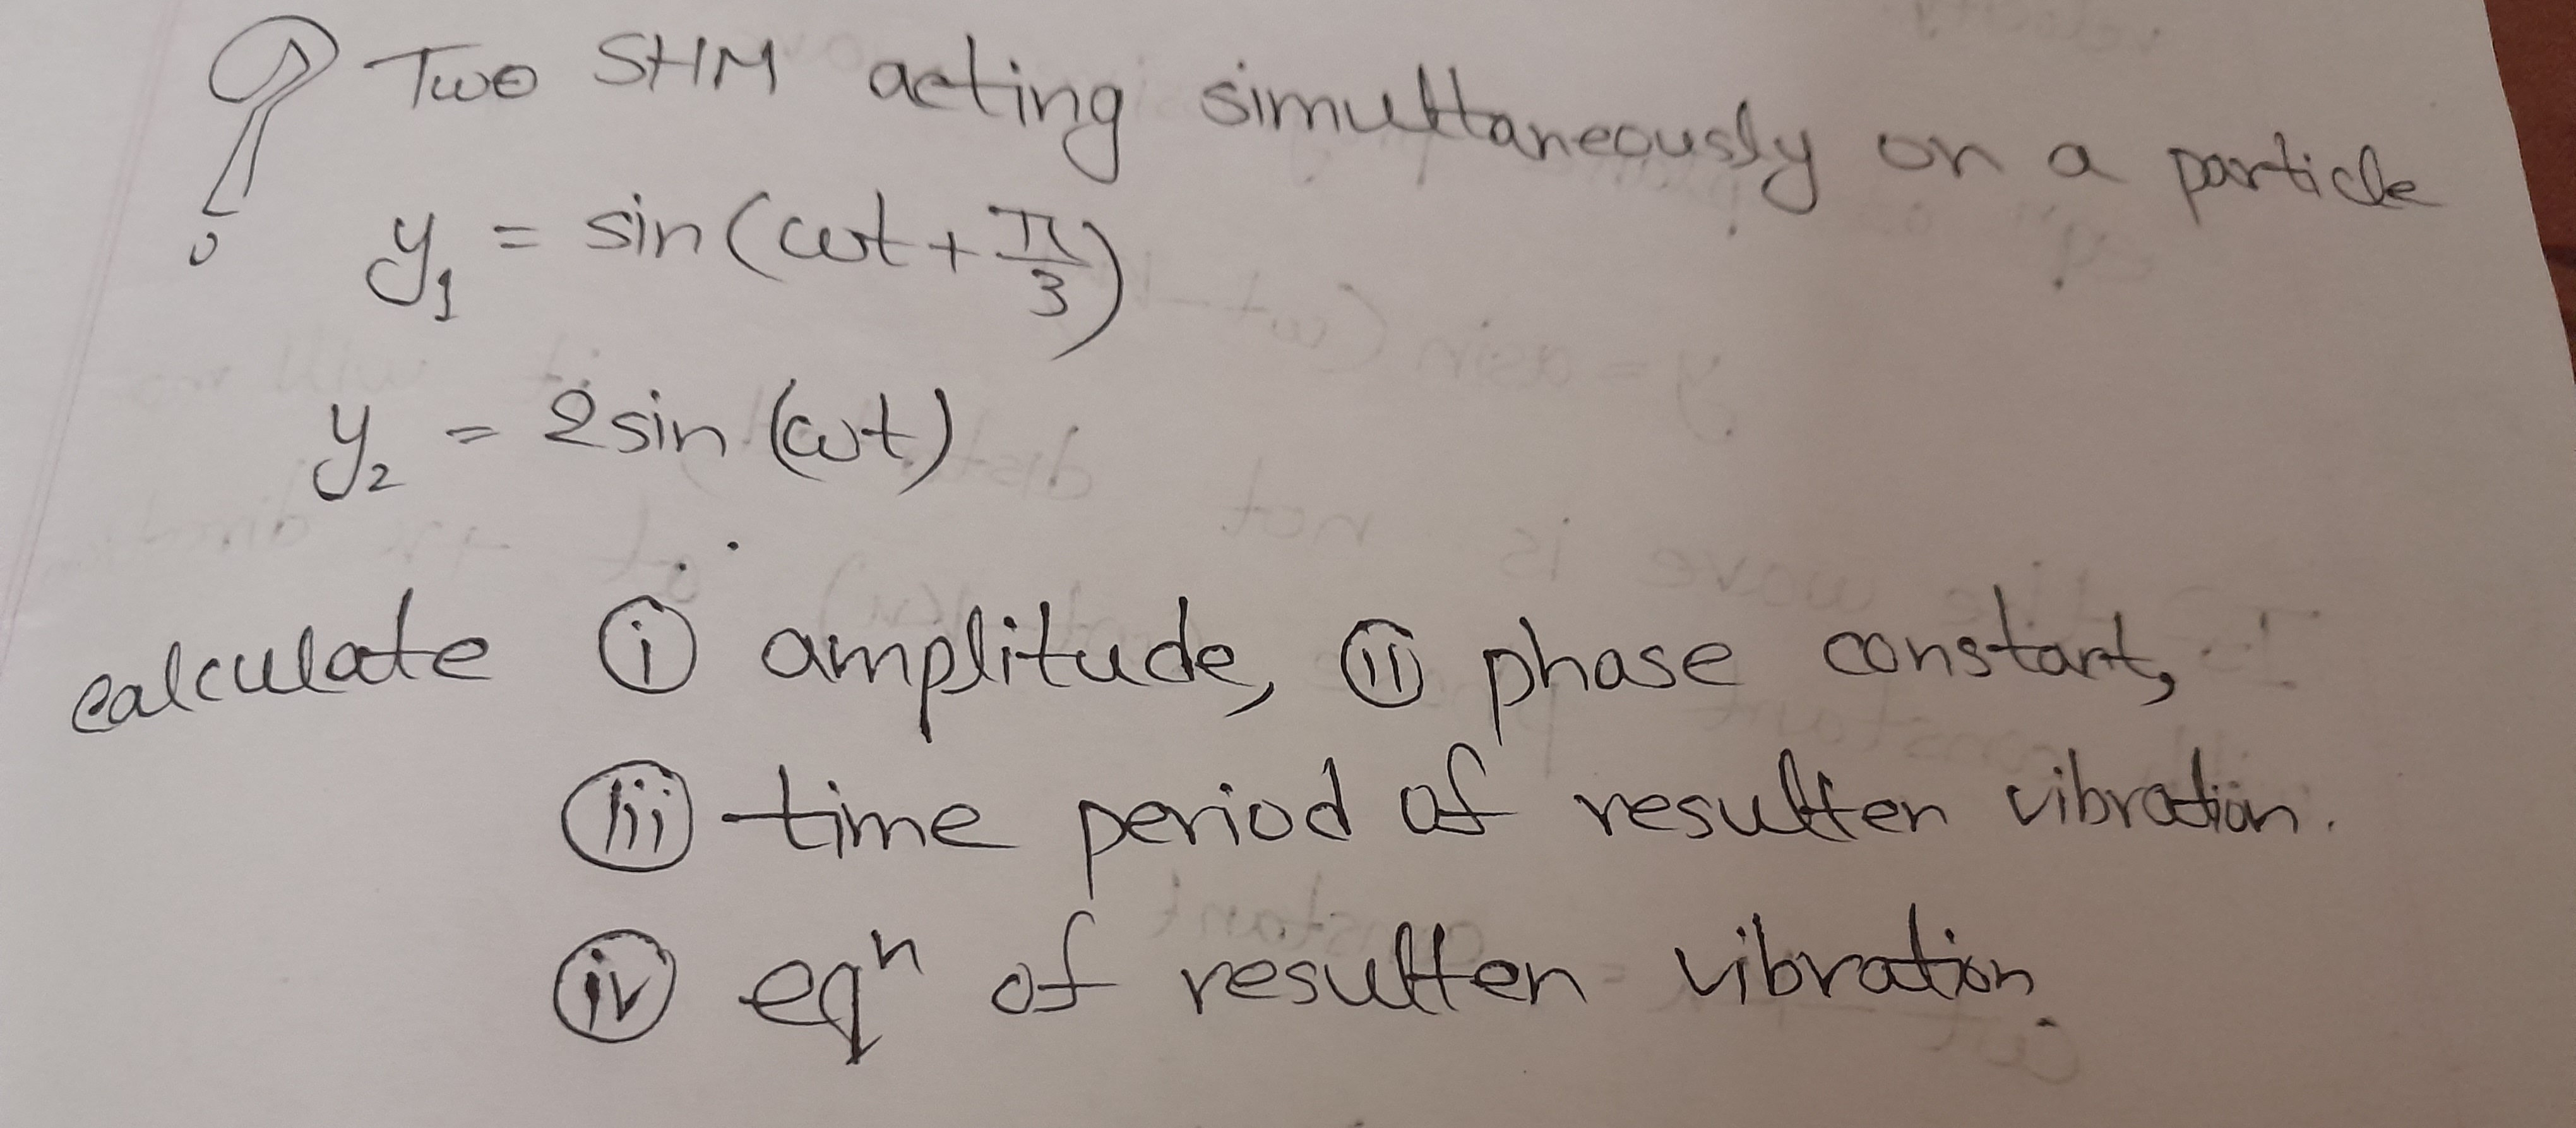 Two SHM acting simulttaneously on a particle
y₁ = sin(ωt + π/3)
y₂ = 2sin(ωt)
calculate (i) amplitude, (ii) phase constant,
(iii) time period of resulten vibration.
(iv) eqⁿ of resulten vibration.